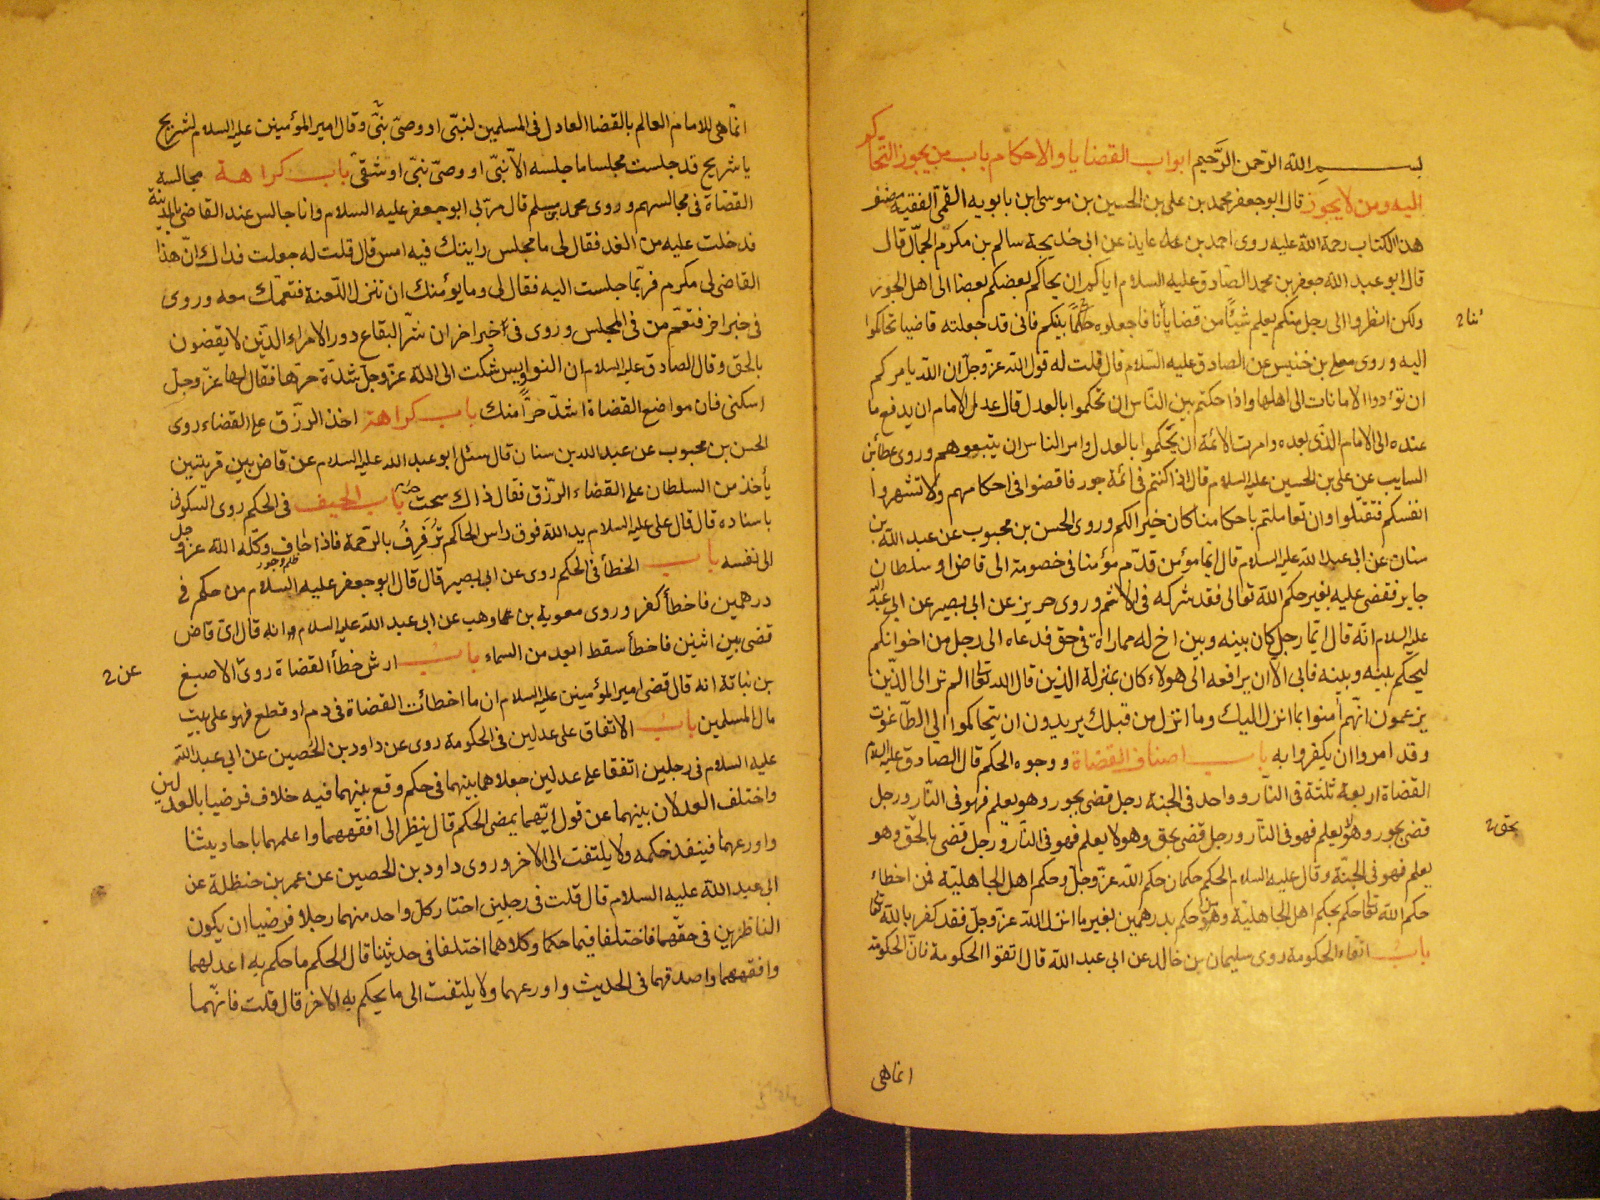 بسم الله الرحمن الرحيم ابواب القضايا والاحكام باب من يجوز التحاكم
اليه ومن لا يجوز قال ابو جعفر محمد بن على بن الحسين بن موسى ابن بابويه القمى الفقيه مصنف
هذا الكتاب رحمة الله عليه روى احمد بن عايذ عن ابى خديجة سالم بن مكرم الجمال قال
قال ابو عبد الله جعفر بن محمد الصادق عليه السلام اياكم ان يحاكم بعضكم بعضا الى اهل الجور
ولكن انظروا الى رجل منكم يعلم شيئا من قضايانا فاجعلوه بينكم فانى قد جعلته قاضيا فتحاكموا
ئنا
اليه وروى معلى بن خنيس عن الصادق عليه السلام قال قلت له قول الله عز وجل ان الله يامركم
ان تؤدوا الامانات الى اهلها واذا حكمتم بين الناس ان تحكموا بالعدل قال عدل الامام ان يدفع ما
عنده الى الامام الذى بعده وامرت الائمة ان يحكموا بالعدل وامر الناس ان يتبعوهم وروى عطاء بن
السايب عن على بن الحسين عليه السلام قال اذا كنتم فى ائمة جور فاقضوا فى احكامهم ولا تشهروا
انفسكم فتقتلوا وان تعاملتم باحكامنا كان خيرا لكم وروى الحسن بن محبوب عن عبد الله بن
سنان عن ابى عبد الله عليه السلام قال ايما مؤمن قدم مؤمنا فى خصومة الى قاض او سلطان
جاير فقضى عليه بغير حكم الله تعالى فقد شركه فى الاثم وروى حريز عن ابى بصير عن ابى عبد الله
عليه السلام انه قال ايما رجل كان بينه وبين اخ له مماراة فى حق فدعاه الى رجل من اخوانكم
ليحكم بينه وبينه فابى الا ان يرافعه الى هولاء كان بمنزلة الذين قال الله تعالى الم تر الى الذين
يزعمون انهم امنوا بما انزل اليك وما انزل من قبلك يريدون ان يتحاكموا الى الطاغوت
وقد امروا ان يكفروا به باب اصناف القضاة ووجوه الحكم قال الصادق عليه السلام
القضاة اربعة ثلثة فى النار وواحد فى الجنة رجل قضى بجور وهو يعلم فهو فى النار ورجل
قضى بجور وهو لا يعلم فهو فى النار ورجل قضى بحق وهو لا يعلم فهو فى النار ورجل قضى بالحق وهو
بحق
يعلم فهو فى الجنة وقال عليه السلام الحكم حكمان حكم الله عز وجل وحكم اهل الجاهلية فمن اخطاء
حكم الله تعالى حكم بحكم اهل الجاهلية ومن حكم بدرهمين بغير ما انزل الله عز وجل فقد كفر بالله تعالى
باب اتقاء الحكومة روى سليمان بن خالد عن ابى عبد الله قال اتقوا الحكومة فان الحكومة
انما هى
انما هى للامام العالم بالقضا العادل فى المسلمين لنبى او وصى نبى وقال امير المؤمنين عليه السلام لشريح
يا شريح قد جلست مجلسا ما جلسه الا نبى او وصى نبى او شقى باب كراهة مجالسة
القضاة فى مجالسهم وروى محمد بن مسلم قال مر بى ابو جعفر عليه السلام وانا جالس عند القاضى بالمدينة
فدخلت عليه من الغد فقال لى ما مجلس رايتك فيه امس قال قلت له جعلت فداك ان هذا
القاضى لى مكرم فربما جلست اليه فقال لى وما يؤمنك ان تنزل اللعنة فتعمك معه وروى
فى خبر اخر فتعم من فى المجلس وروى فى خبر اخر ان شر البقاع دور الامراء الذين لا يقضون
بالحق وقال الصادق عليه السلام ان النواويس شكت الى الله عز وجل شدة حرها فقال لها عز وجل
اسكنى فان مواضع القضاة اشد حرا منك باب كراهة اخذ الرزق على القضاء روى
الحسن بن محبوب عن عبد الله بن سنان قال سئل ابو عبد الله عليه السلام عن قاض بين قريتين
يأخذ من السلطان على القضاء الرزق فقال ذاك سحت باب الحيف فى الحكم روى السكونى
باسناده قال قال على عليه السلام يد الله فوق راس الحاكم ترفرف بالرحمة فاذا حاف وكله الله عز وجل
الى نفسه باب الخطأ فى الحكم روى عن ابى بصير قال قال ابو جعفر عليه السلام من حكم فى
درهمين فاخطأ كفر وروى معوية بن وهب عن ابى عبد الله عليه السلام انه قال اى قاض
قضى بين اثنين فاخطأ سقط ابعد من السماء باب ارش خطأ القضاة روى الاصبغ
عن
بن نباتة انه قال قضى امير المؤمنين عليه السلام ان ما اخطأت القضاة فى دم او قطع فهو على بيت
مال المسلمين باب الاتفاق على عدلين فى الحكومة روى عن داود بن الحصين عن ابى عبد الله
عليه السلام فى رجلين اتفقا على عدلين جعلاهما بينهما فى حكم وقع بينهما فيه خلاف فرضيا بالعدلين
واختلف العدلان بينهما عن قول ايهما يمضى الحكم قال ينظر الى افقههما واعلمهما باحاديثنا
واورعهما فينفذ حكمه ولا يلتفت الى الاخر وروى داود بن الحصين عن عمر بن حنظلة عن
ابى عبد الله عليه السلام قال قلت فى رجلين اختار كل واحد منهما رجلا فرضيا ان يكون
الناظرين فى حقهما فاختلفا فيما حكما وكلاهما اختلفا فى حديثنا قال الحكم ما حكم به اعدلهما
وافقههما واصدقهما فى الحديث واورعهما ولا يلتفت الى ما يحكم به الاخر قال قلت فانهما